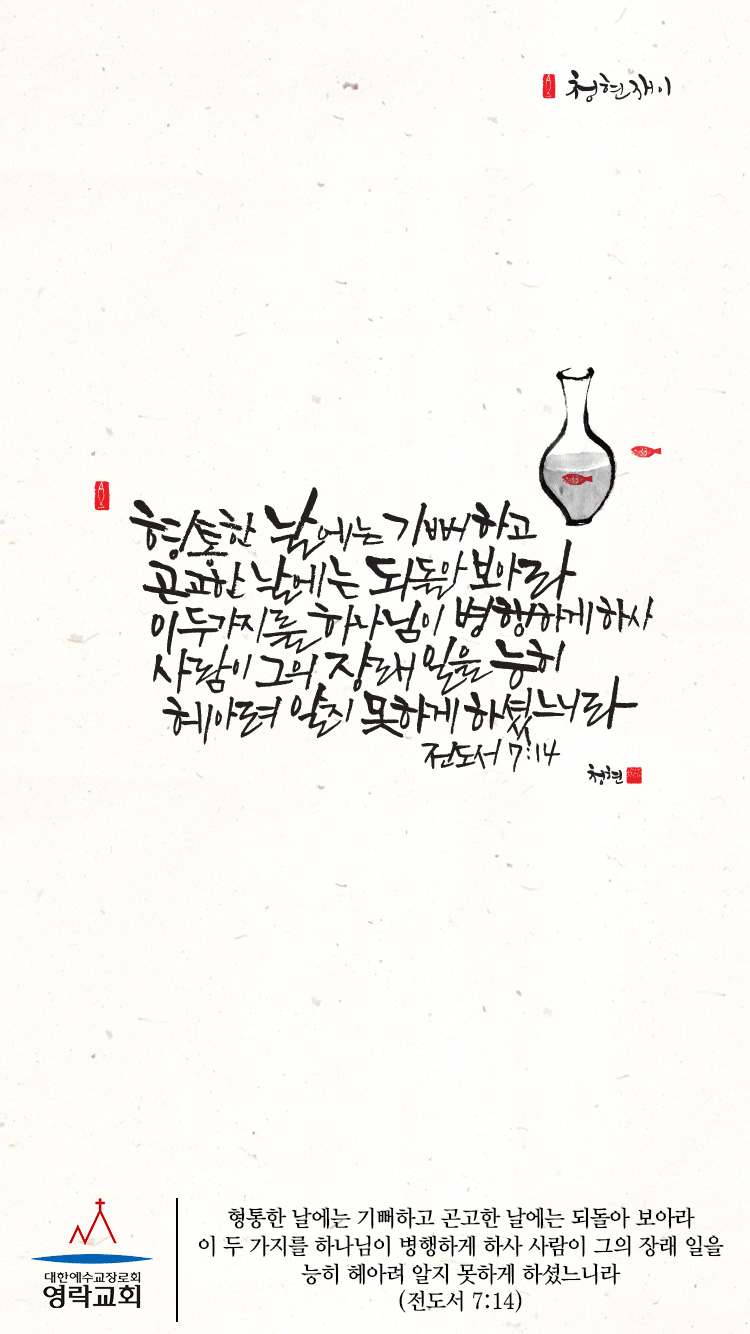 청현재이
형통한 날에는 기뻐하고
곤고한 날에는 되돌아 보아라
이 두 가지를 하나님이 병행하게 하사
사람이 그의 장래 일을 능히
헤아려 알지 못하게 하셨느니라
전도서 7:14
청현
대한예수교장로회
영락교회
형통한 날에는 기뻐하고 곤고한 날에는 되돌아 보아라
이 두 가지를 하나님이 병행하게 하사 사람이 그의 장래 일을
능히 헤아려 알지 못하게 하셨느니라
(전도서 7:14)